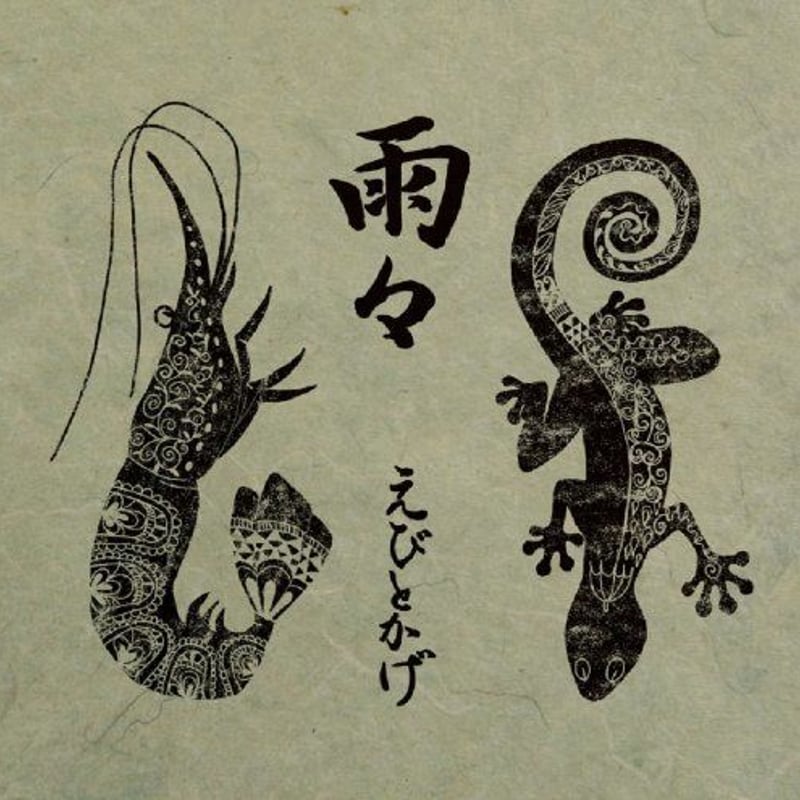 雨々
えびとかげ